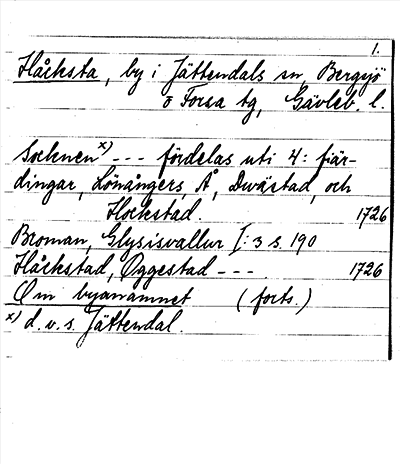 1.
Håcksta, by i Jättendals sn, Bergsjö
o Forsa tg, Gävleb. l.
Socknen x) --- fördelas uti 4: fiär-
dingar, Lönångers, Å, Dwästad, och
Hockstad. 1726
Broman, Glysisvallur I: 3 s. 190
Håckstad, Oggestad --- 1726
Om bynamnet (forts.)
x) d.v.s. Jättendal.